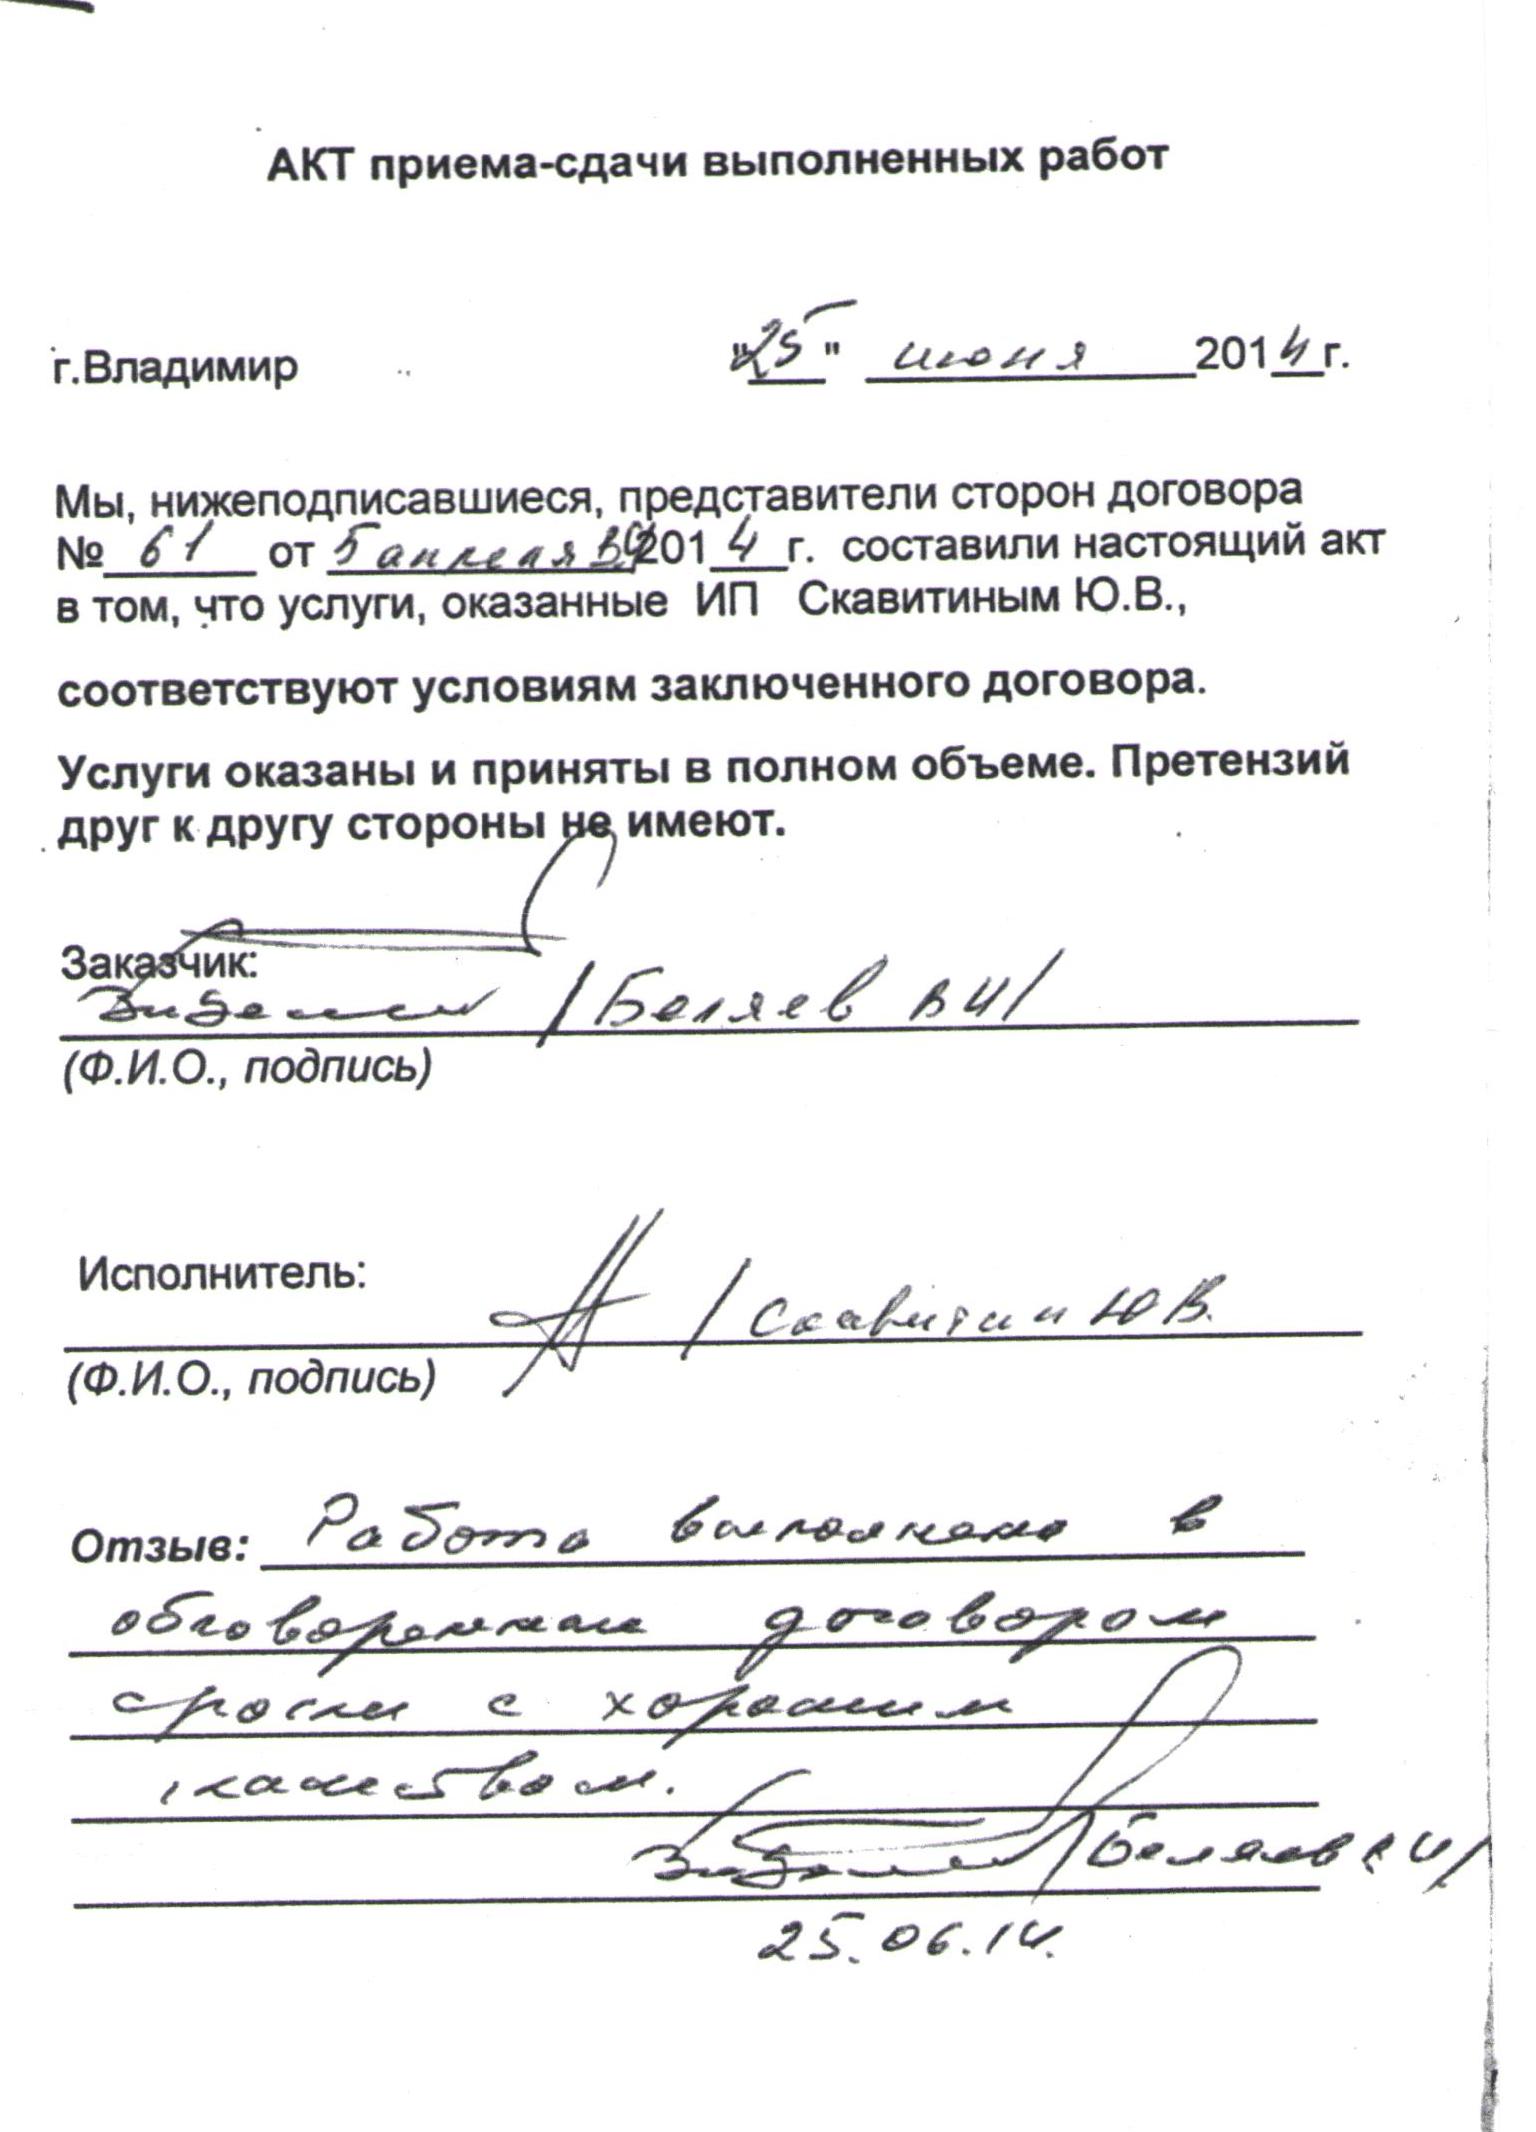 АКТ приема-сдачи выполненных работ
г.Владимир "25" июня 2014 г.
Мы, нижеподписавшиеся, представители сторон договора
№ 61 от 5 апреля 2014 г. составили настоящий акт
в том, что услуги, оказанные ИП Скавитиным Ю.В.,
соответствуют условиям заключенного договора.
Услуги оказаны и приняты в полном объеме. Претензий
друг к другу стороны не имеют.
Заказчик:
/Беляев В И/
(Ф.И.О., подпись)
Исполнитель:
/ Скавитин Ю В.
(Ф.И.О., подпись)
Отзыв: Работа выполнена в
обговоренные договором
сроки с хорошим
качеством.
/Беляев В И/
25.06.14.